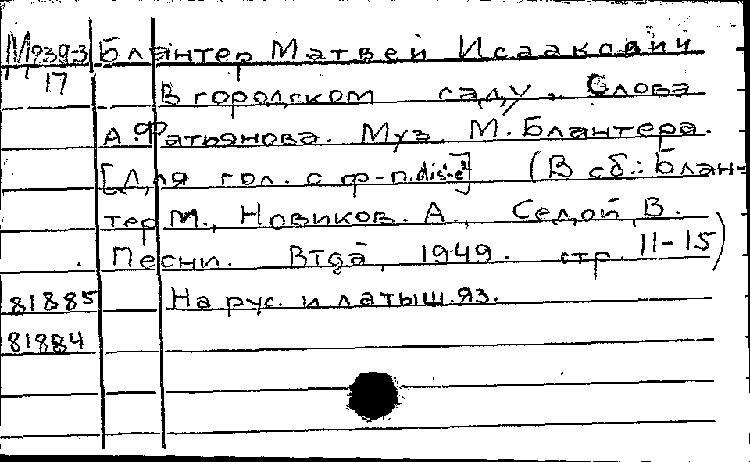 М939-3 Блантер Матвей Исаакович
17 В городском саду. Слова
А. Фатьянова. Муз. М. Блантера.
[Для гол. с ф-п. dis-e²] (В сб.: Блан-
тер М., Новиков. А., Седой, В.
Песни. Вtдa, 1949. стр. 11-15)
81885 На рус. и латыш. яз.
81884